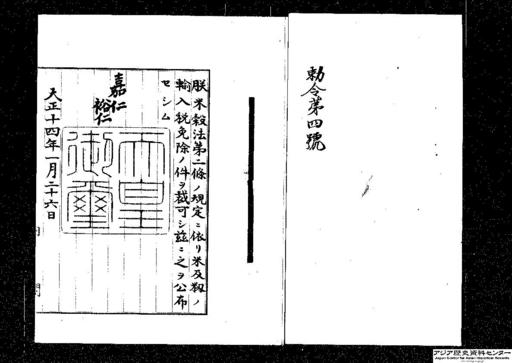 勅令第四號
朕米穀法第二條ノ規定ニ依リ米及籾ノ
輸入税免除ノ件ヲ裁可シ茲ニ之ヲ公布
セシム
嘉仁
裕仁
天皇
御璽
大正十四年一月二十六日
アジア歴史資料センター
Japan Center for Asian Historical Records